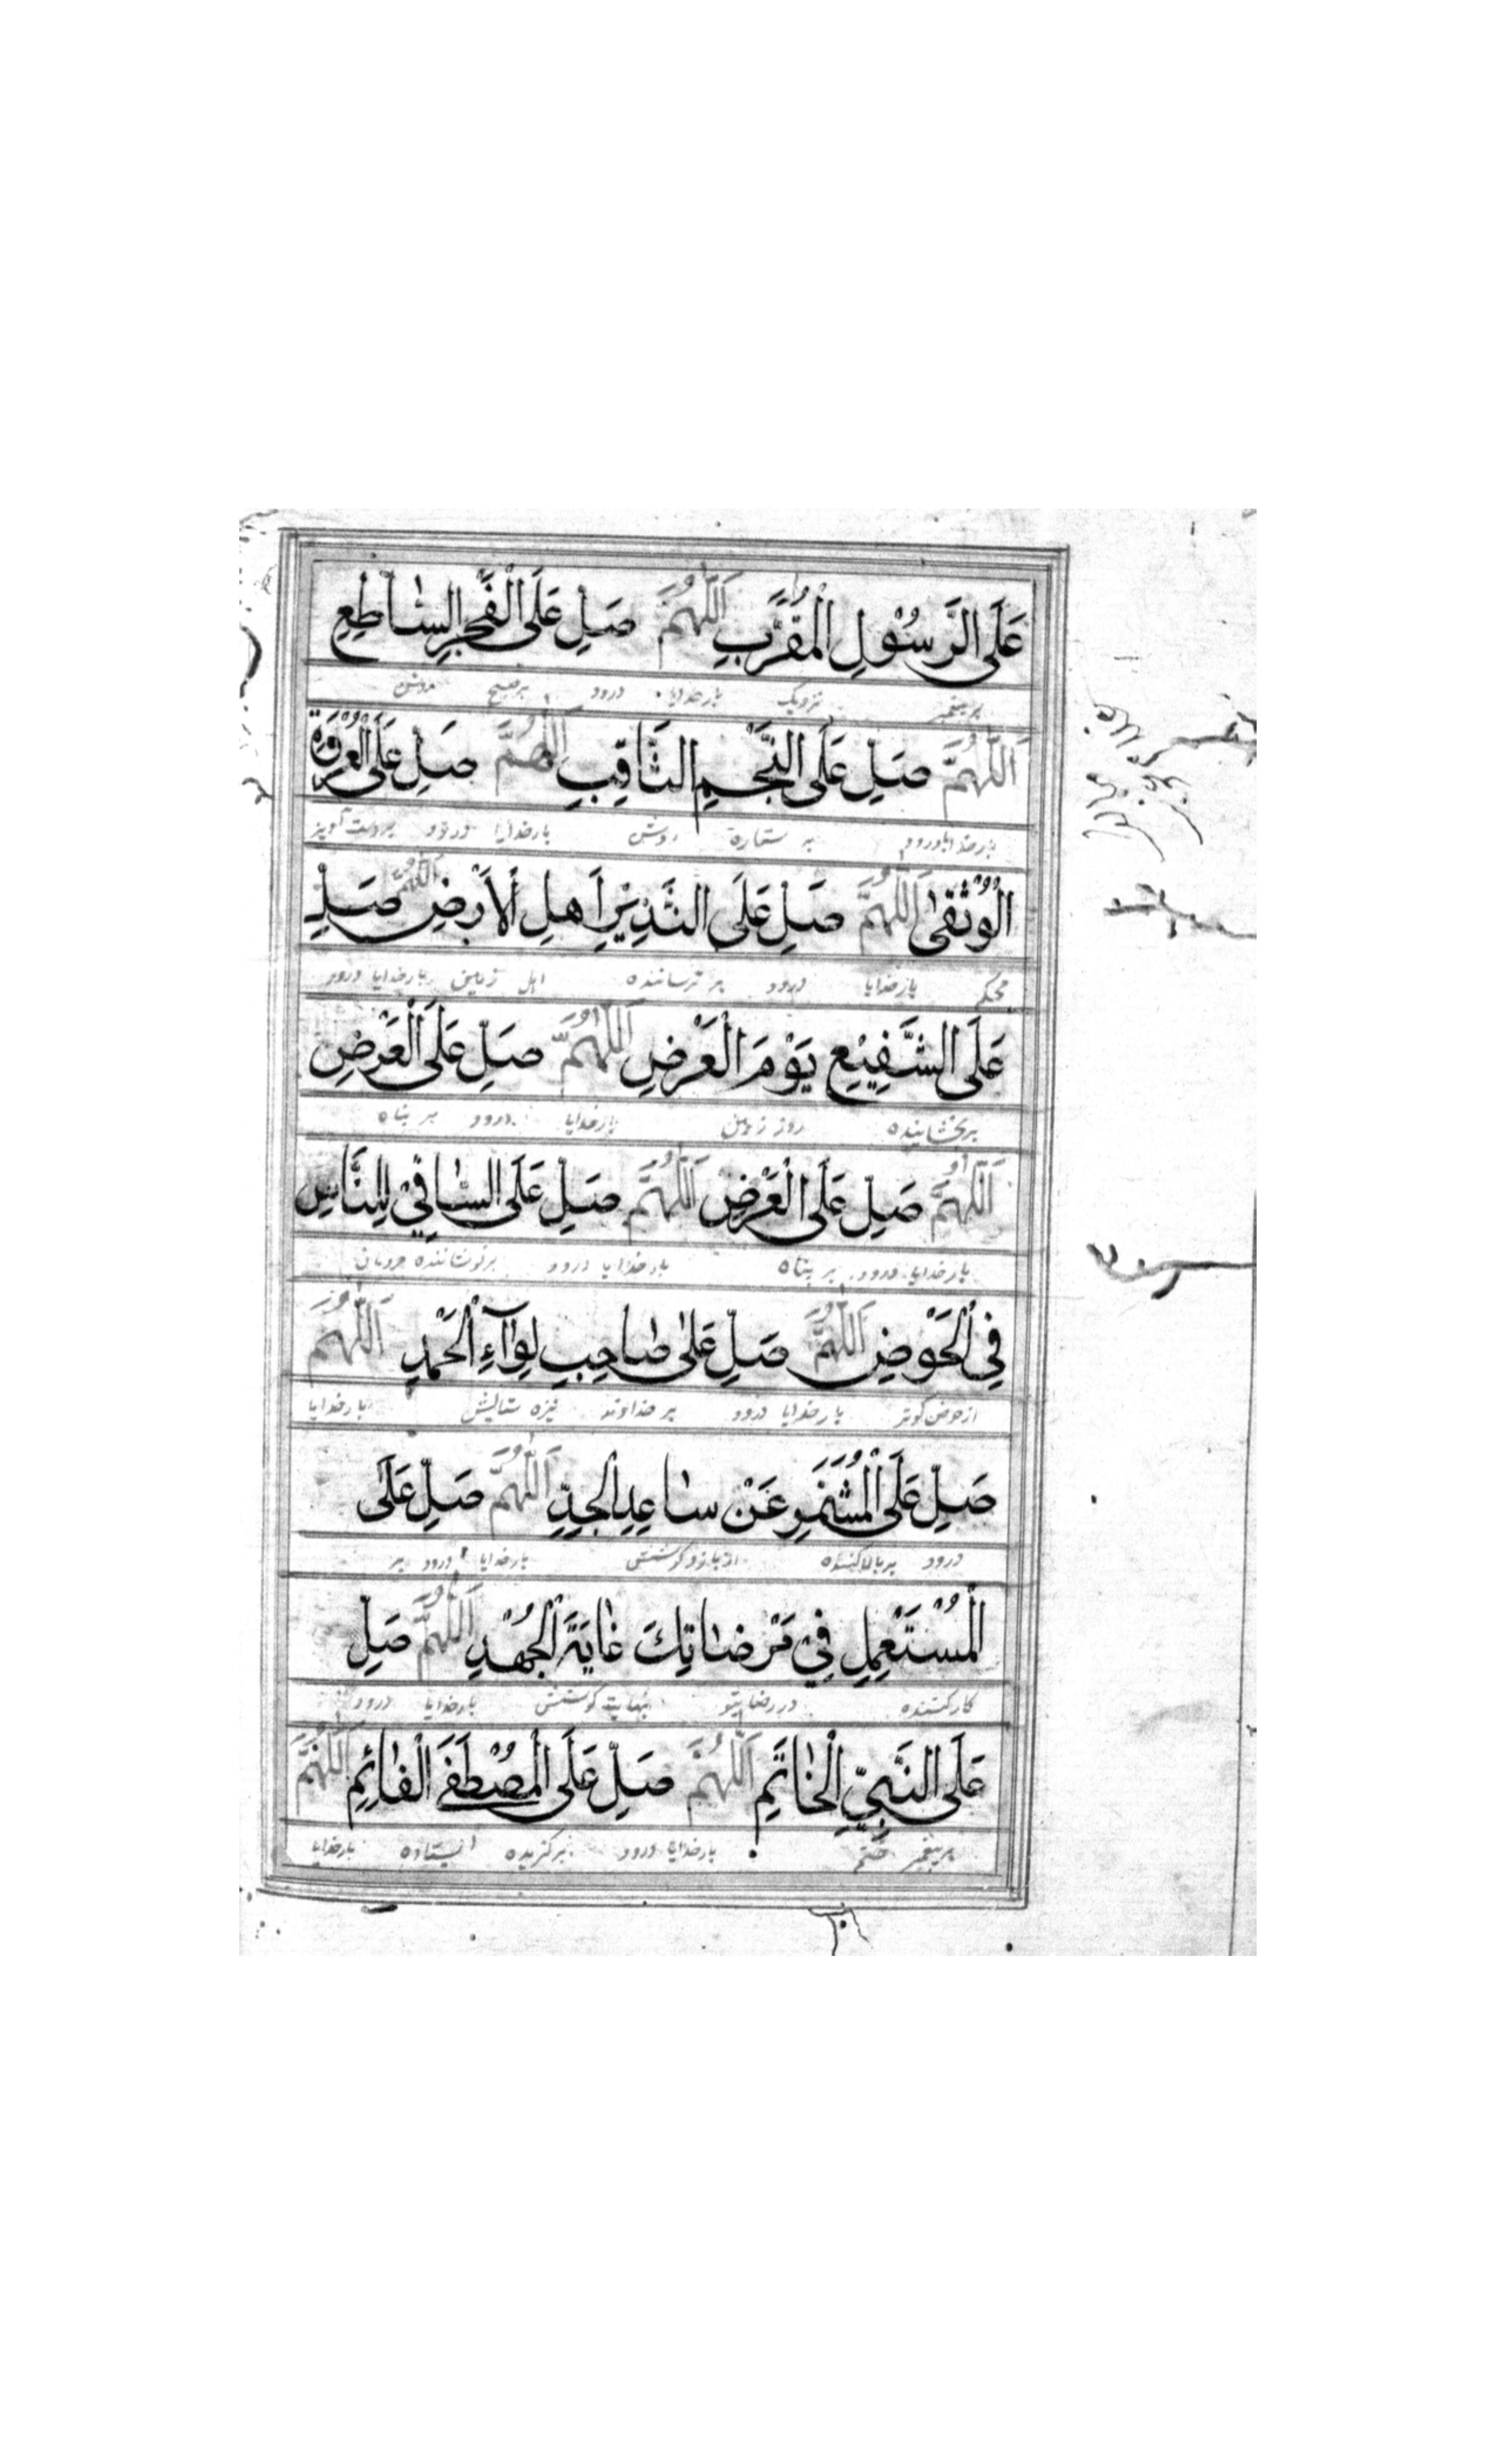 عَلَى الرَّسُوْلِ الْمُقَرَّبِ اَللّٰهُمَّ صَلِّ عَلَى الْفَجْرِ السَّاطِعِ
بر پیغمبر نزدیک بارخدایا درود بر صبح روشن
اَللّٰهُمَّ صَلِّ عَلَى النَّجْمِ الثَّاقِبِ اَللّٰهُمَّ صَلِّ عَلَى الْعُرْوَةِ
بارخدایا درود بر ستاره روشن بارخدایا درود بر دست آویز
الْوُثْقٰى اَللّٰهُمَّ صَلِّ عَلَى النَّذِيْرِ اَهْلِ الْاَرْضِ اَللّٰهُمَّ صَلِّ
محکم بارخدایا درود بر ترساننده اهل زمین بارخدایا درود
عَلَى الشَّفِيْعِ يَوْمَ الْعَرْضِ اَللّٰهُمَّ صَلِّ عَلَى الْعَرْضِ
بر بخشاینده روز زمین بارخدایا درود بر پناه
اَللّٰهُمَّ صَلِّ عَلَى الْعَرْضِ اَللّٰهُمَّ صَلِّ عَلَى السَّاقِيْ لِلنَّاسِ
بارخدایا درود بر پناه بارخدایا درود بر نوشاننده مردمان
فِى الْحَوْضِ اَللّٰهُمَّ صَلِّ عَلٰى صَاحِبِ لِوَآءِ الْحَمْدِ اَللّٰهُمَّ
از حوض کوثر بارخدایا درود بر خداوند نیزه ستایش بارخدایا
صَلِّ عَلَى الْمُشَمِّرِ عَنْ سَاعِدِ الْجِدِّ اَللّٰهُمَّ صَلِّ عَلَى
درود بر بالا کننده از بازو کوشش بارخدایا درود بر
الْمُسْتَعْمِلِ فِيْ مَرْضَاتِكَ غَايَةَ الْجُهْدِ اَللّٰهُمَّ صَلِّ
کار کننده در رضای تو نهایت کوشش بارخدایا درود
عَلَى النَّبِيِّ الْخَاتَمِ اَللّٰهُمَّ صَلِّ عَلَى الْمُصْطَفَى الْقَائِمِ اَللّٰهُمَّ
بر پیغمبر ختم بارخدایا درود بر گزیده ایستاده بارخدایا